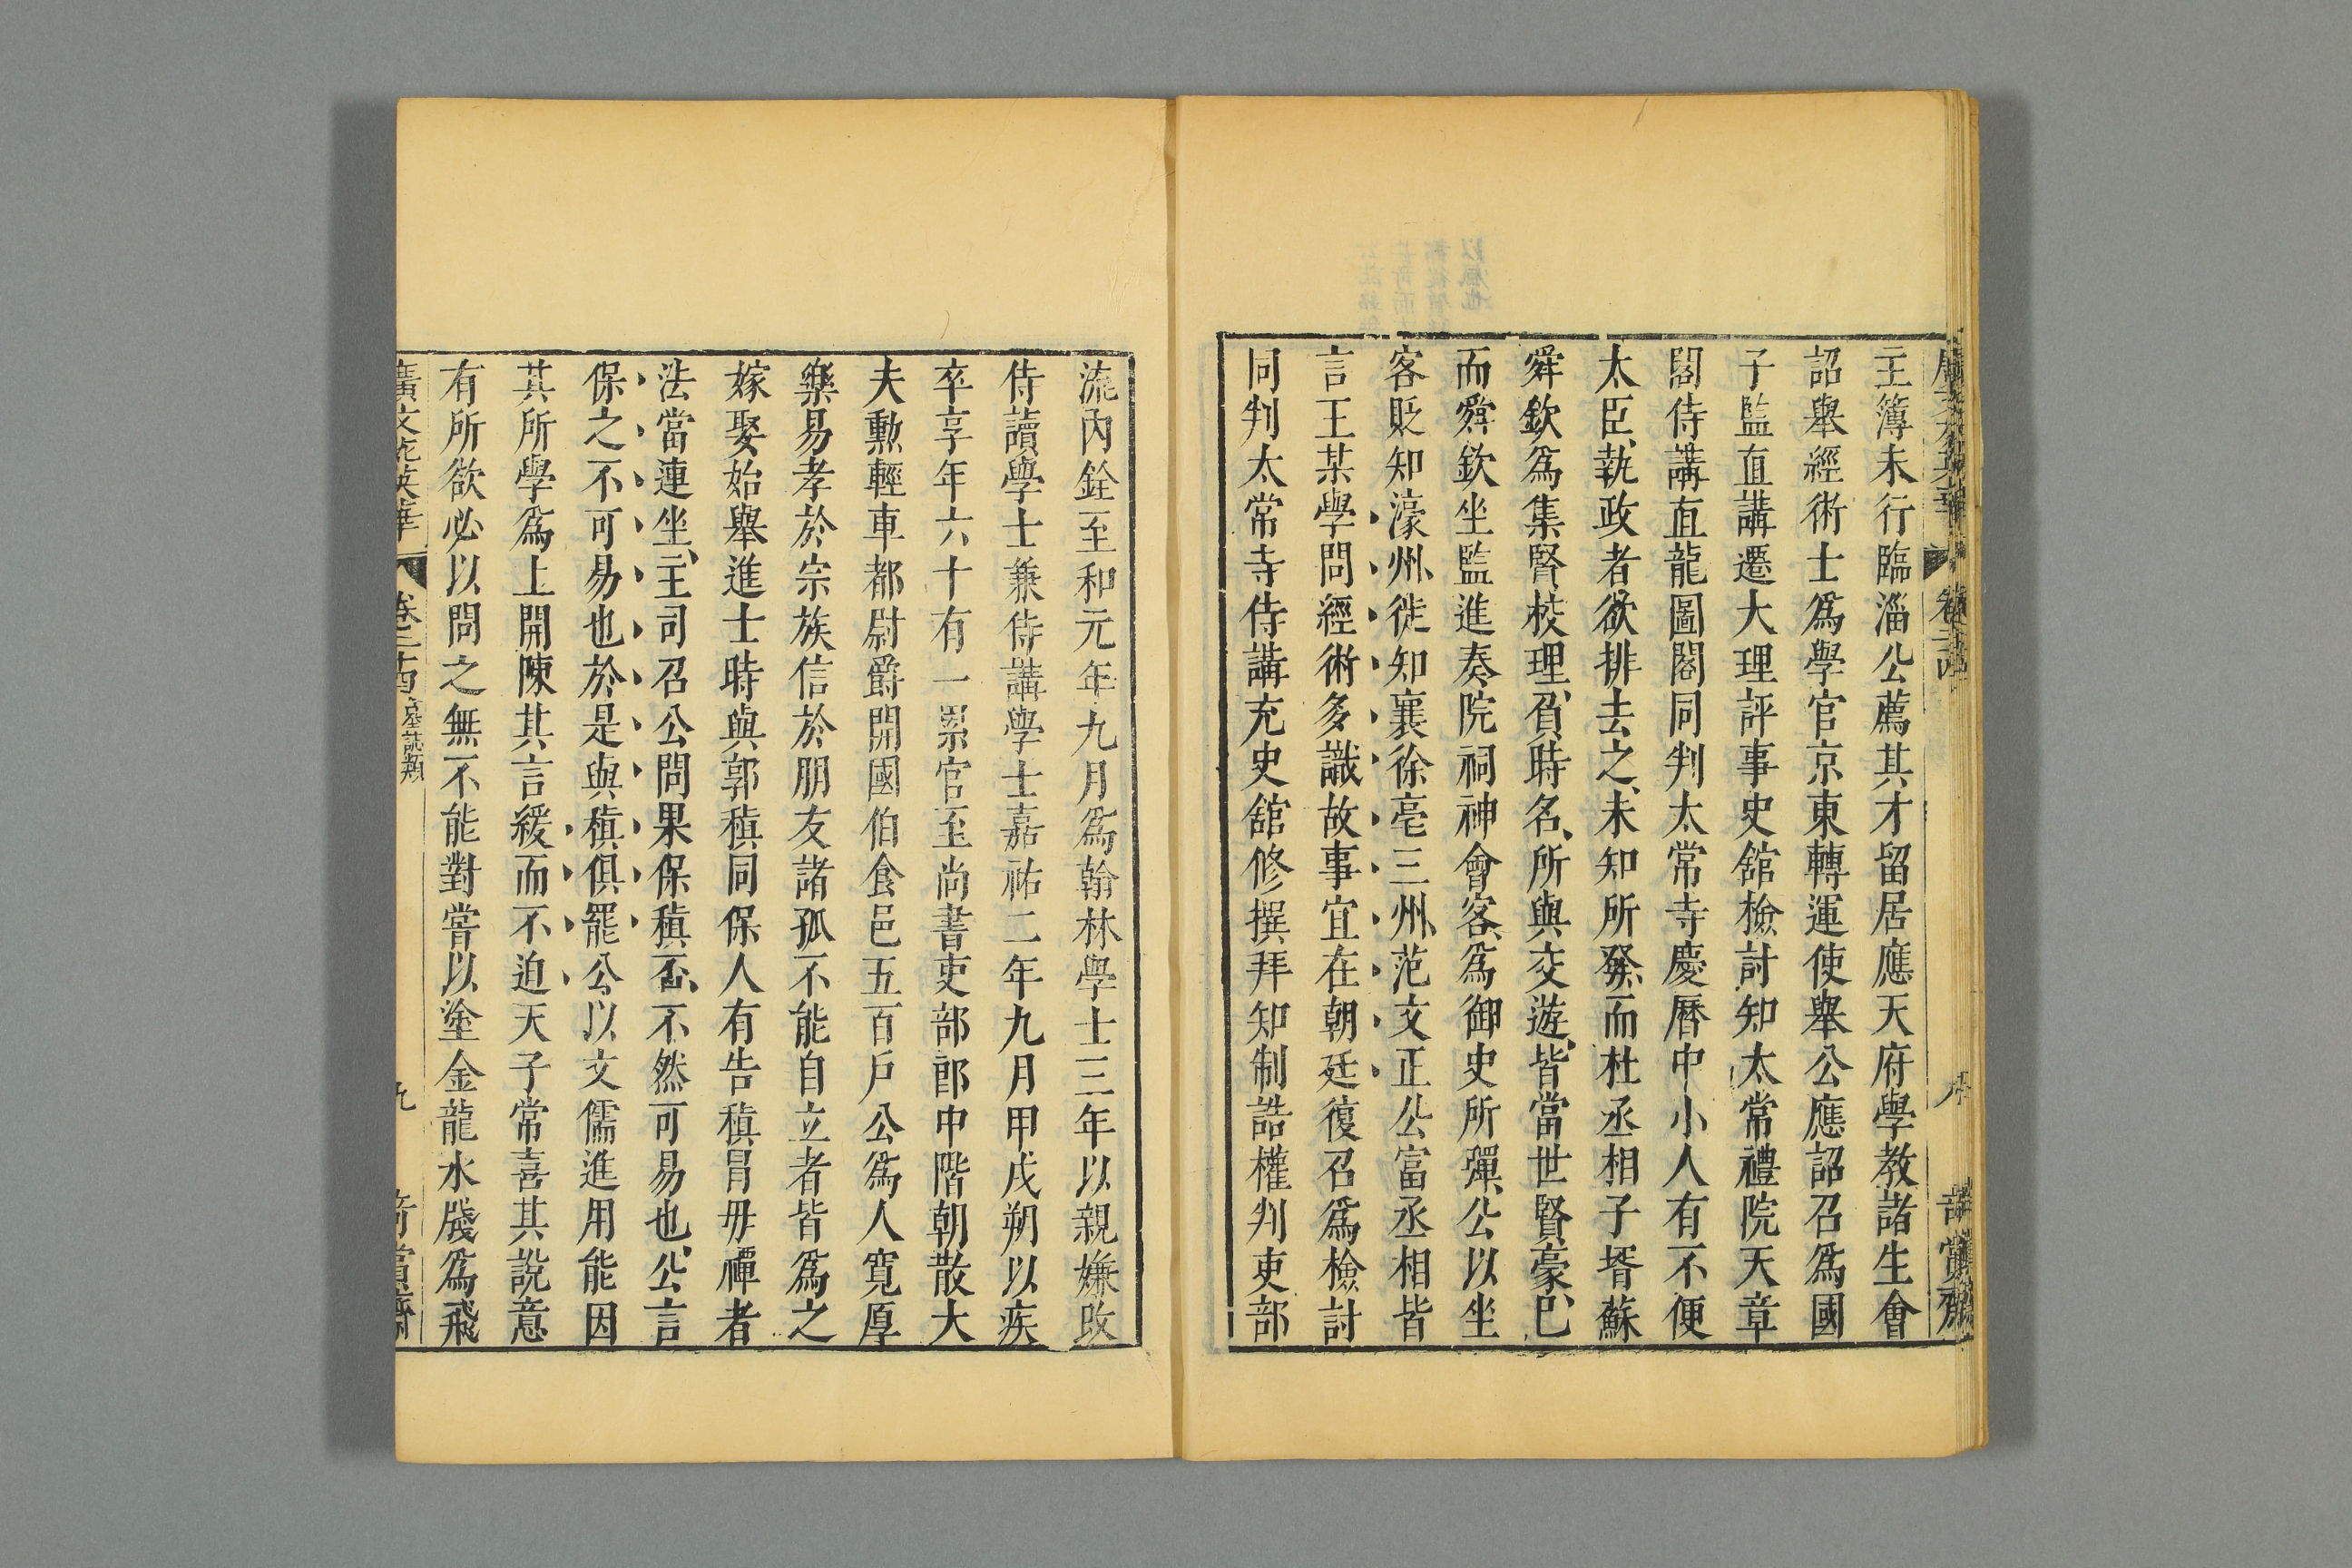 主簿未行臨淄公薦其才留居應天府學教諸生會
詔舉經術士為學官京東轉運使舉公應詔召為國
子監直講遷大理評事史舘檢討知太常禮院天章
閣侍講直龍圖閣同判太常寺慶曆中小人有不便
大臣執政者欲排去之未知所發而杜丞相子壻蘇
舜欽為集賢校理負時名所與交遊皆當世賢豪已
而舜欽坐監進奏院祠神會客為御史所彈公以坐
客貶知濠州徙知襄徐亳三州范文正公富丞相皆
言王某學問經術多識故事宜在朝廷復召為檢討
同判太常寺侍講充史舘修撰拜知制誥權判吏部
流內銓至和元年九月為翰林學士三年以親嫌改
侍讀學士兼侍講學士嘉祐二年九月甲戌朔以疾
卒享年六十有一累官至尚書吏部郎中階朝散大
夫勲輕車都尉爵開國伯食邑五百戶公為人寬厚
樂易孝於宗族信於朋友諸孤不能自立者皆為之
嫁娶始舉進士時與郭稹同保人有告稹冒毋禫者
法當連坐主司召公問果保稹否不然可易也公言
保之不可易也於是與稹俱罷公以文儒進用能因
其所學為上開陳其言緩而不迫天子常喜其說意
有所欲必以問之無不能對嘗以塗金龍水牋為飛
廣文苑英華 卷二十四 墓誌類 九